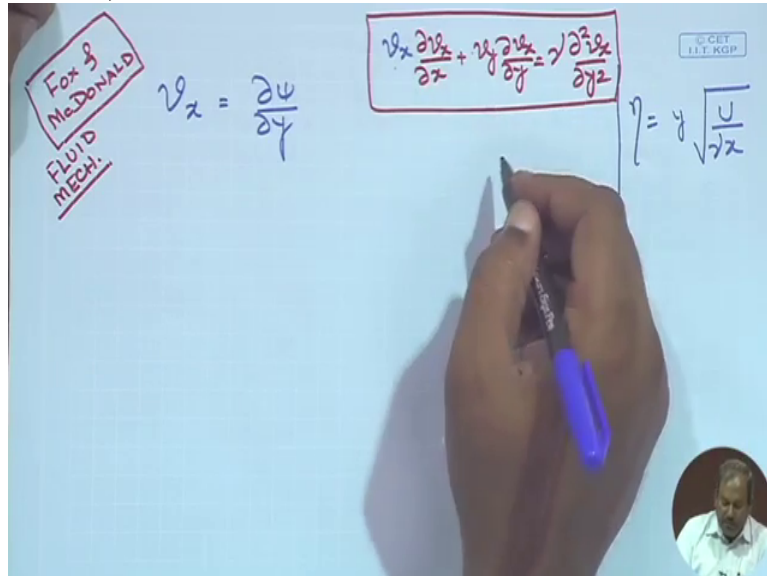 Fox &
McDONALD
FLUID
MECH.
𝑣x = ∂ψ/∂y
𝑣x ∂𝑣x/∂x + 𝑣y ∂𝑣x/∂y = ν ∂²𝑣x/∂y2
© CET
I.I.T. KGP
η = y √(U/νx)